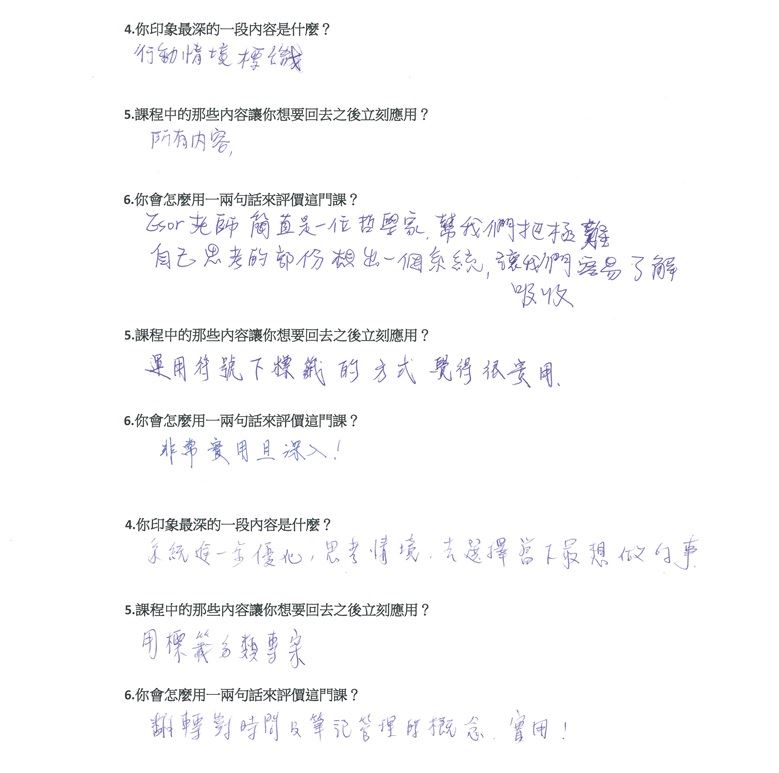 4.你印象最深的一段內容是什麼？
行動情境標籤
5.課程中的那些內容讓你想要回去之後立刻應用？
所有內容,
6.你會怎麼用一兩句話來評價這門課？
Esor老師簡直是一位哲學家,幫我們把極難
自己思考的部份想出一個系統,讓我們容易了解
吸收
5.課程中的那些內容讓你想要回去之後立刻應用？
運用符號下標籤的方式覺得很實用.
6.你會怎麼用一兩句話來評價這門課？
非常實用且深入!
4.你印象最深的一段內容是什麼？
系統進一步優化,思考情境.去選擇當下最想做的事
5.課程中的那些內容讓你想要回去之後立刻應用？
用標籤分類專案
6.你會怎麼用一兩句話來評價這門課？
翻轉對時間及筆記管理的概念.實用!